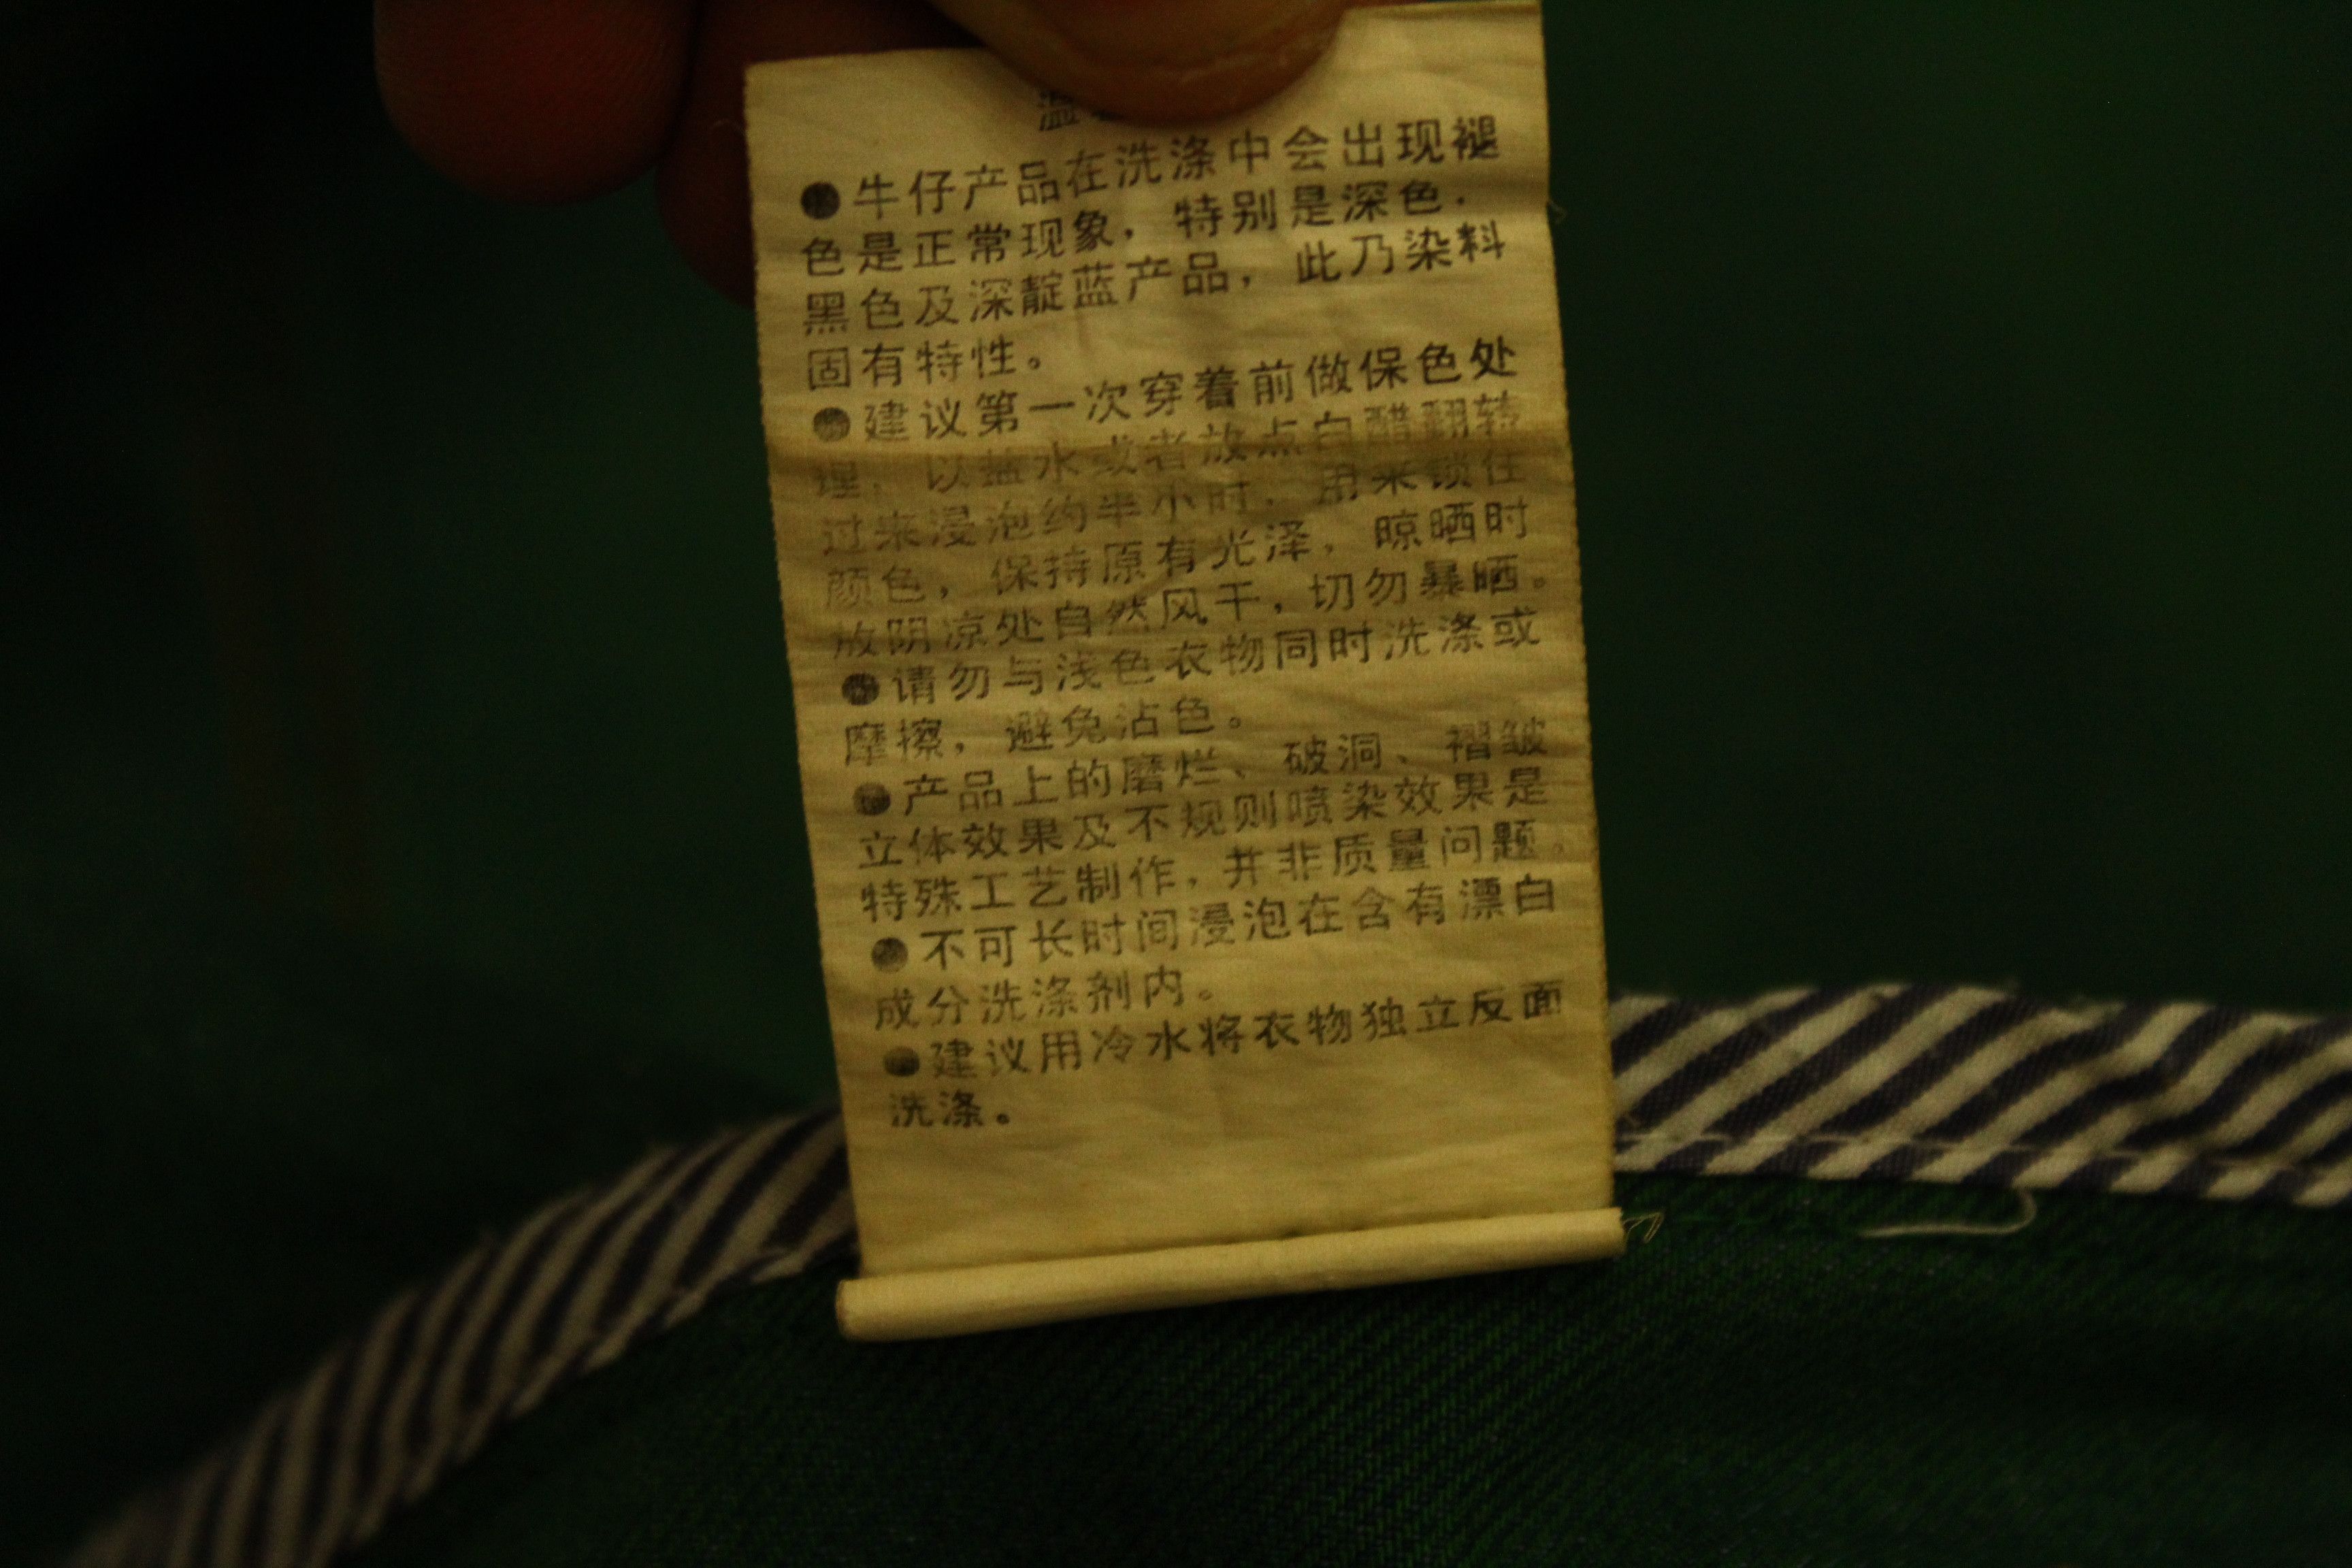 温
●牛仔产品在洗涤中会出现褪
色是正常现象，特别是深色.
黑色及深靛蓝产品，此乃染料
固有特性。
●建议第一次穿着前做保色处
理，以盐水或者放点白醋翻转
过来浸泡约半小时，用来锁住
颜色，保持原有光泽，晾晒时
放阴凉处自然风干，切勿暴晒。
●请勿与浅色衣物同时洗涤或
摩擦，避免沾色。
●产品上的磨烂、破洞、褶皱
立体效果及不规则喷染效果是
特殊工艺制作，并非质量问题。
●不可长时间浸泡在含有漂白
成分洗涤剂内。
●建议用冷水将衣物独立反面
洗涤。